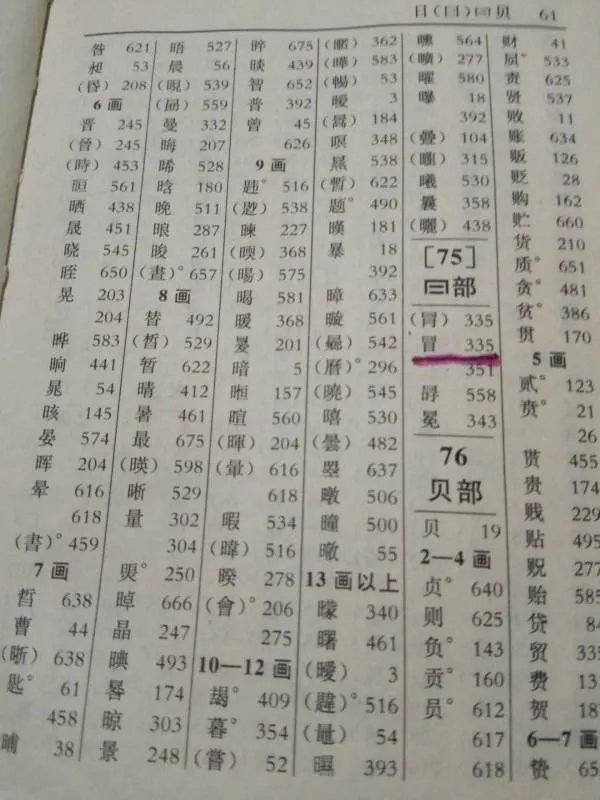 日(曰)⺜贝 61
昝 621
昶 53
(昬) 208
6 画
晋 245
(晉) 245
(時) 453
晅 561
晒 438
晟 451
晓 545
晊 650
晃 203
204
晔 583
晌 441
晁 54
晐 145
晏 574
晖 204
晕 616
618
(書)° 459
7 画
晢 638
曹 44
(晣) 638
匙° 61
458
晡 38
晤 527
晨 56
(晛) 539
(勗) 559
曼 332
晦 207
晞 528
晗 180
晚 511
晙 261
(晝)° 657
8 画
替 492
(晳) 529
暂 622
晴 412
暑 461
最 675
(暎) 598
晰 529
量 302
304
晫 666
晶 247
晪 493
晷 174
晾 303
景 248
晬 675
智 652
普 392
曾 45
626
9 画
韪° 516
(尟) 538
暕 227
(暍) 575
暍 581
暖 368
暗 5
暄 560
(暉) 204
(暈) 616
618
暇 534
(暐) 516
暌 278
(會)° 206
275
10—12 画
暮° 354
(嘗) 52
(暱) 362
(曄) 583
(暢) 53
暧 3
184
暝 348
(暫) 622
题° 490
暵 181
暴 18
392
暲 633
暶 561
(曆)° 296
(曉) 545
曏 530
(曇) 482
曌 637
暾 506
曈 500
暾 55
13 画以上
曚 340
曙 461
(曖) 3
(韙)° 516
(鼂) 54
曝 393
曛 564
(曠) 277
曜 580
曝 18
392
(疊) 104
曦 530
曩 358
(曬) 438
[75]
⺜部
(冐) 335
冒 335
351
冔 558
冕 343
76
贝部
贝 19
2—4 画
贞° 640
则 625
负° 143
贡° 160
员° 612
617
618
财 41
屃° 533
责 625
贤 537
败 11
账 634
贩 126
贬 28
购 162
贮 660
货 210
质° 651
贪° 481
贫° 386
贯 170
5 画
贰° 123
贲° 21
26
贳 455
贵 174
贱 229
贴 495
贶 277
贻 585
贷 84
贸 335
费 131
贺 187
6—7 画
贽 65